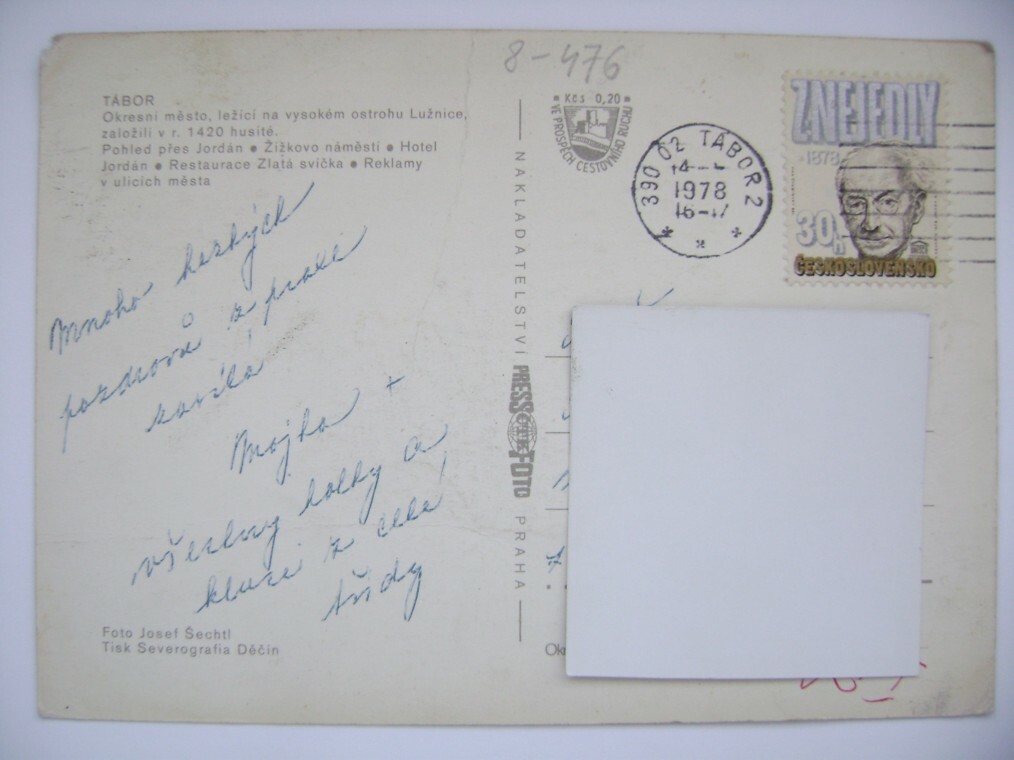 TÁBOR
Okresní město, ležící na vysokém ostrohu Lužnice,
založili v r. 1420 husité.
Pohled přes Jordán ● Žižkovo náměstí ● Hotel
Jordán ● Restaurace Zlatá svíčka ● Reklamy
v ulicích města
Mnoho hezkých
pozdravů z praxe
+
všechny holky a
kluci z celé
třídy
Foto Josef Šechtl
Tisk Severografia Děčín
8-476
NAKLADATELSTVÍ PRESSFOTO PRAHA
Kčs 0,20
VE PROSPĚCH CESTOVNÍHO RUCHU
390 02 TÁBOR 2
1978
16-17
Z NEJEDLÝ
1878
30h
ČESKOSLOVENSKO